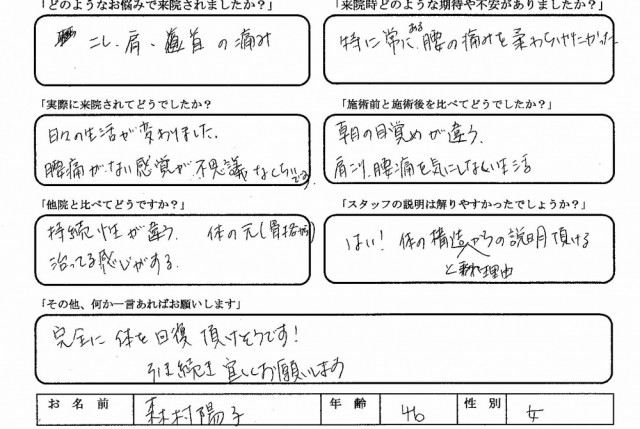 「どのようなお悩みで来院されましたか？」
こし、肩、首の痛み
「来院時どのような期待や不安がありましたか？」
特に常にある腰の痛みを柔わらげたかった
「実際に来院されてどうでしたか？
日々の生活が変わりました。
腰痛がない感覚が不思議なくらいです。
「施術前と施術後を比べてどうでしたか？
朝の目覚めが違う。
肩こり、腰痛を気にしない生活
「他院と比べてどうですか？」
持続性が違う。 体の元(骨格の)
治ってる感じがする。
「スタッフの説明は解りやすかったでしょうか？」
はい！ 体の構造と 理由からの説明頂ける
「その他、何か一言あればお願いします」
完全に体を回復頂けそうです！
引き続き宜しくお願いします
お名前 森村陽子 年齢 46 性別 女